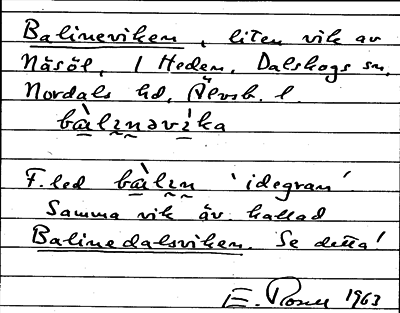 Balineviken, liten vik av
Näsöl, 1 Heden, Dalskogs sn,
Nordals hd, Älvsb. l.
bàlinəvika
F.led bàlin 'idegran'
Samma vik äv. kallad
Balinedalsviken. Se detta!
E. 1963